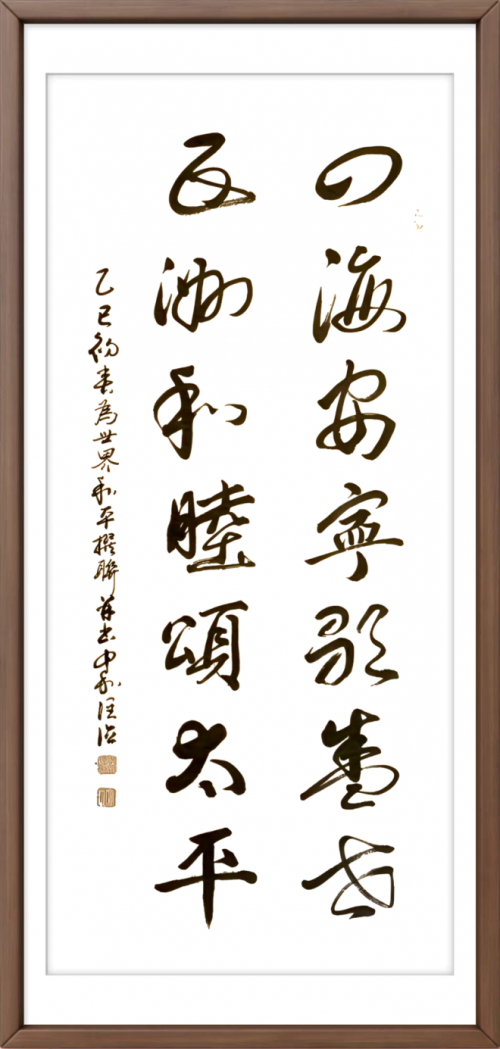 四海安宁歌盛世
五洲和睦頌太平
乙巳初春為世界和平撰聯並书中和